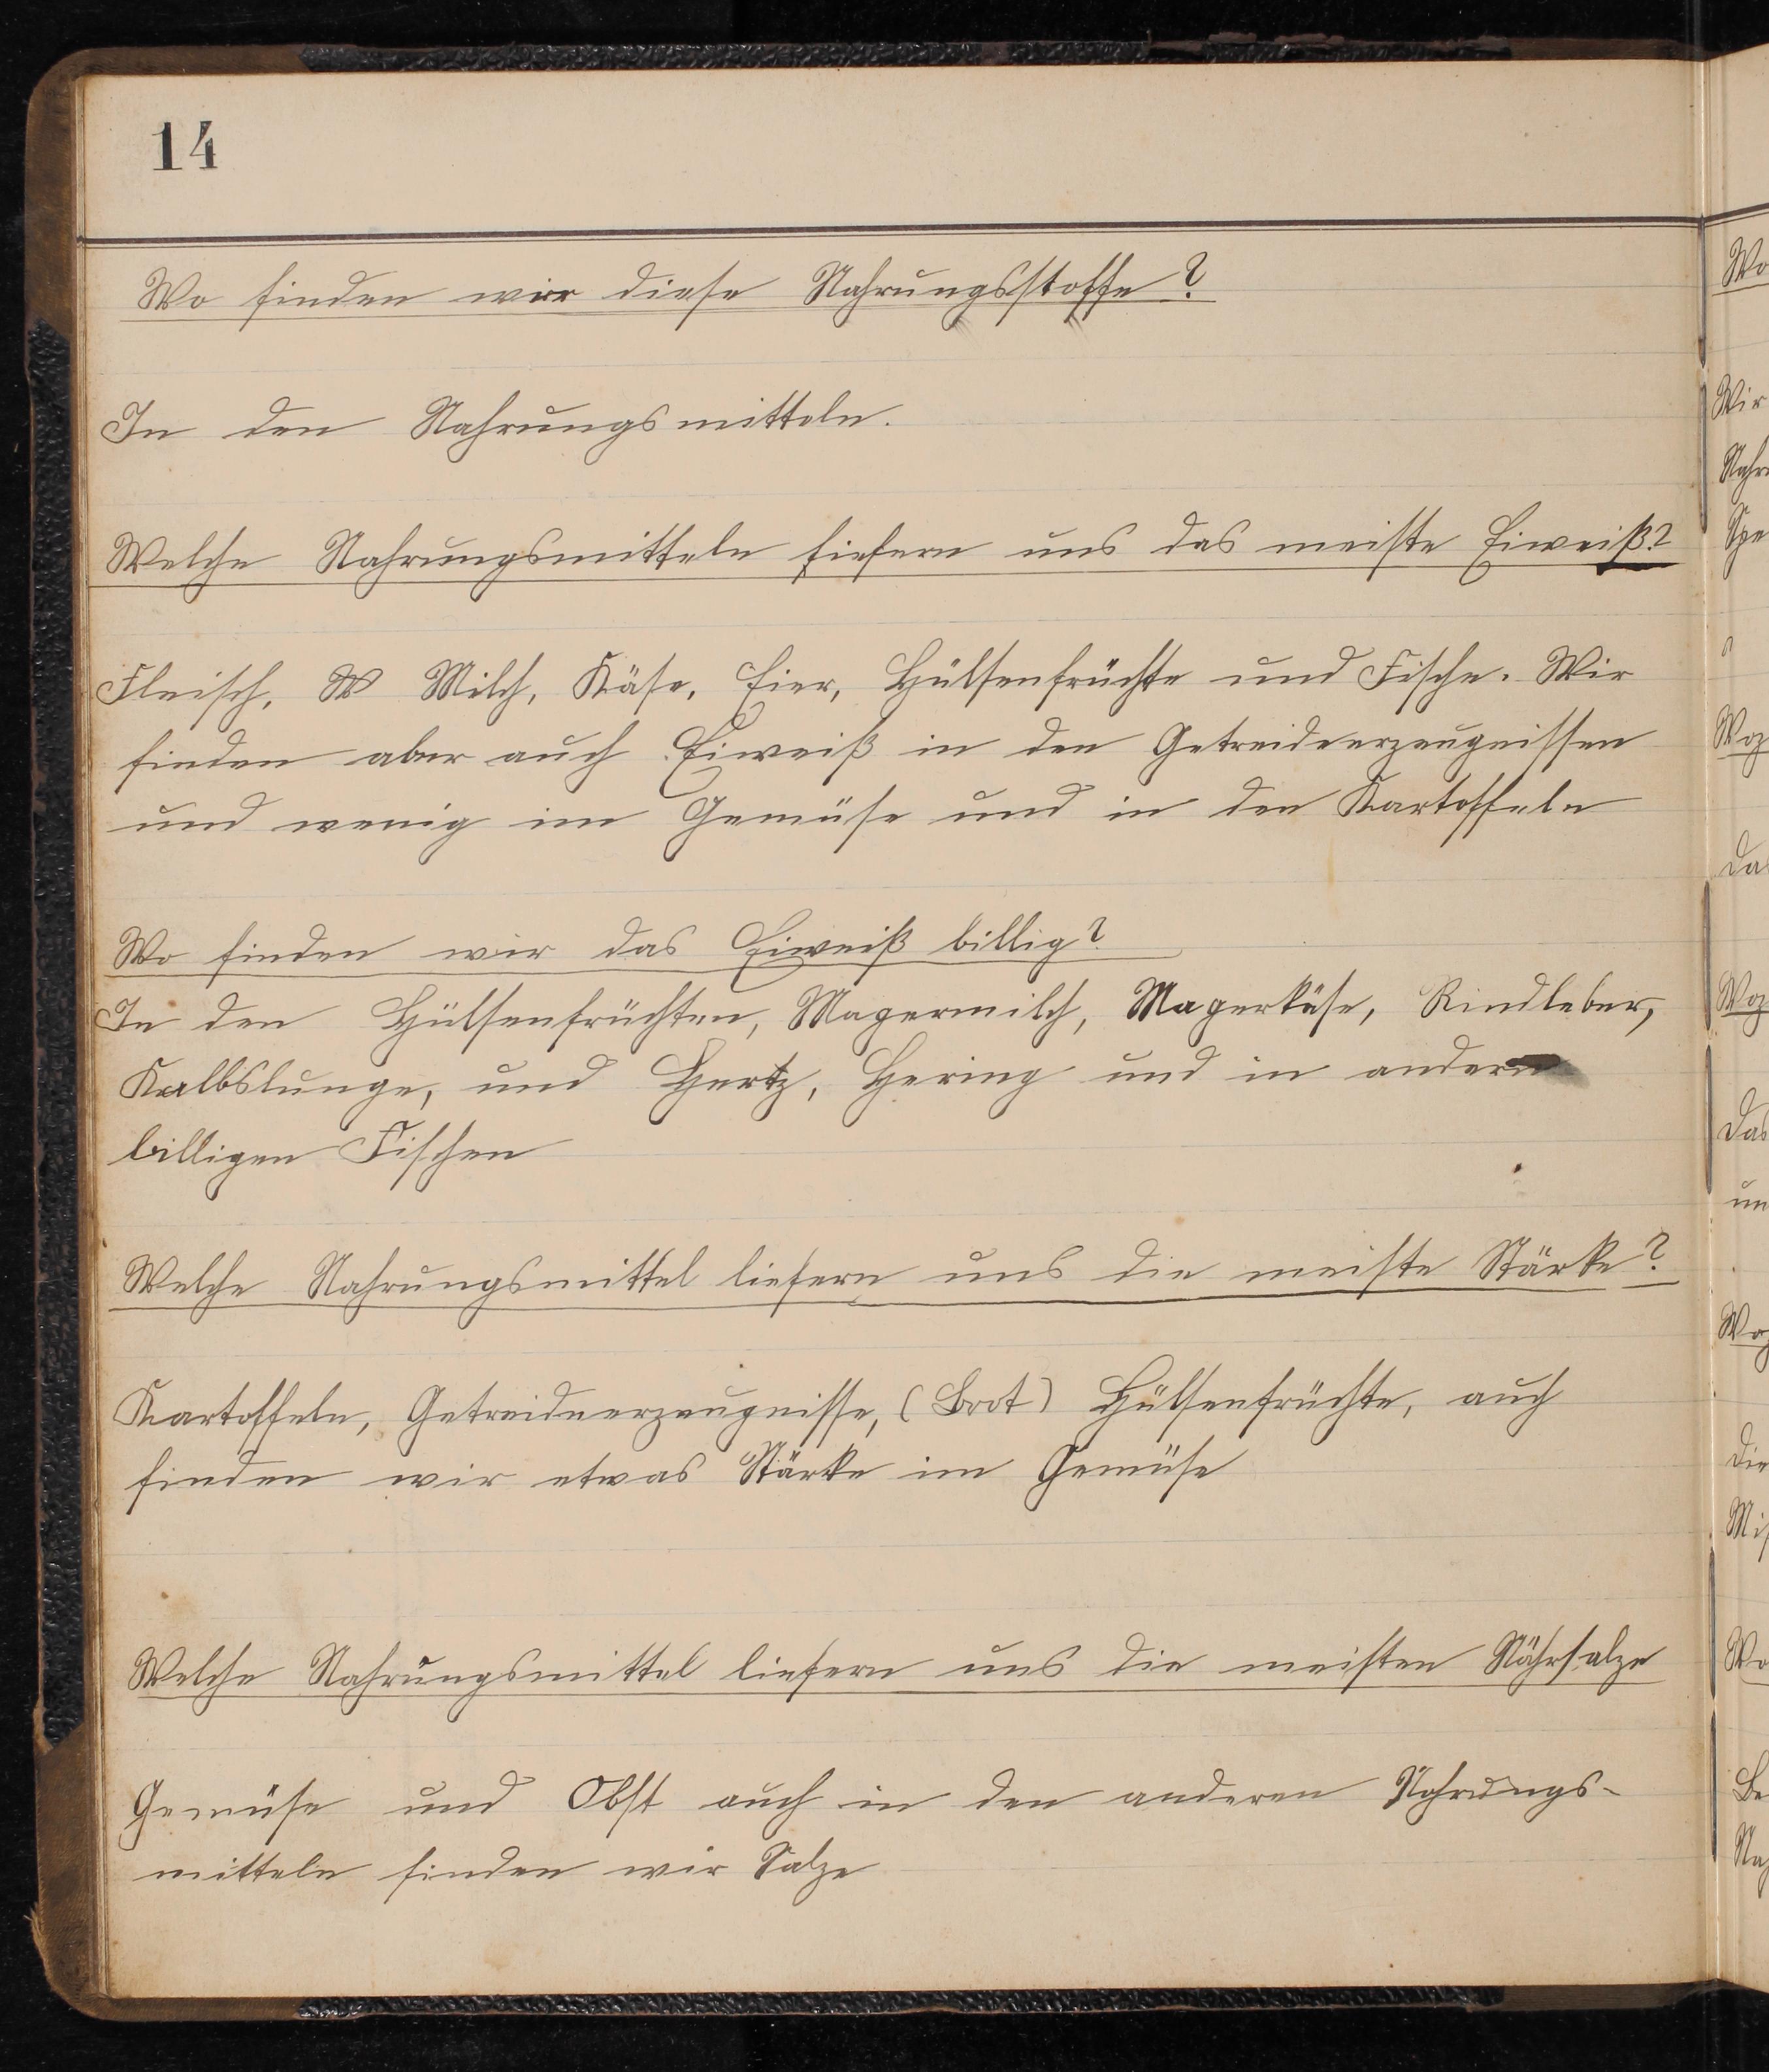 14
Wo finden wir diese Nahrungsstoffe?
In den Nahrungsmitteln.
Welche Nahrungsmitteln liefern uns das meiste Eiweiß?
Fleisch, W Milch, Käse, Eier, Hülsenfrüchte und Fische. Wir
finden aber auch Eiweiß in den Getreideerzeugnissen
und wenig im Gemüse und in den Kartoffeln
Wo finden wir das Eiweiß billig?
In den Hülsenfrüchten, Magermilch, Magerkäse, Rindleber,
Kalbslunge, und Hertz, Hering und in andern
billigen Fischen
Welche Nahrungsmittel liefern uns die meiste Stärke?
Kartoffeln, Getreideerzeugnisse, (Brot) Hülsenfrüchte, auch
finden wir etwas Stärke im Gemüse
Welche Nahrungsmittel liefern uns die meisten Nährsalze
Gemüse und Obst auch in den anderen Nahrungs-
mitteln finden wir Salze